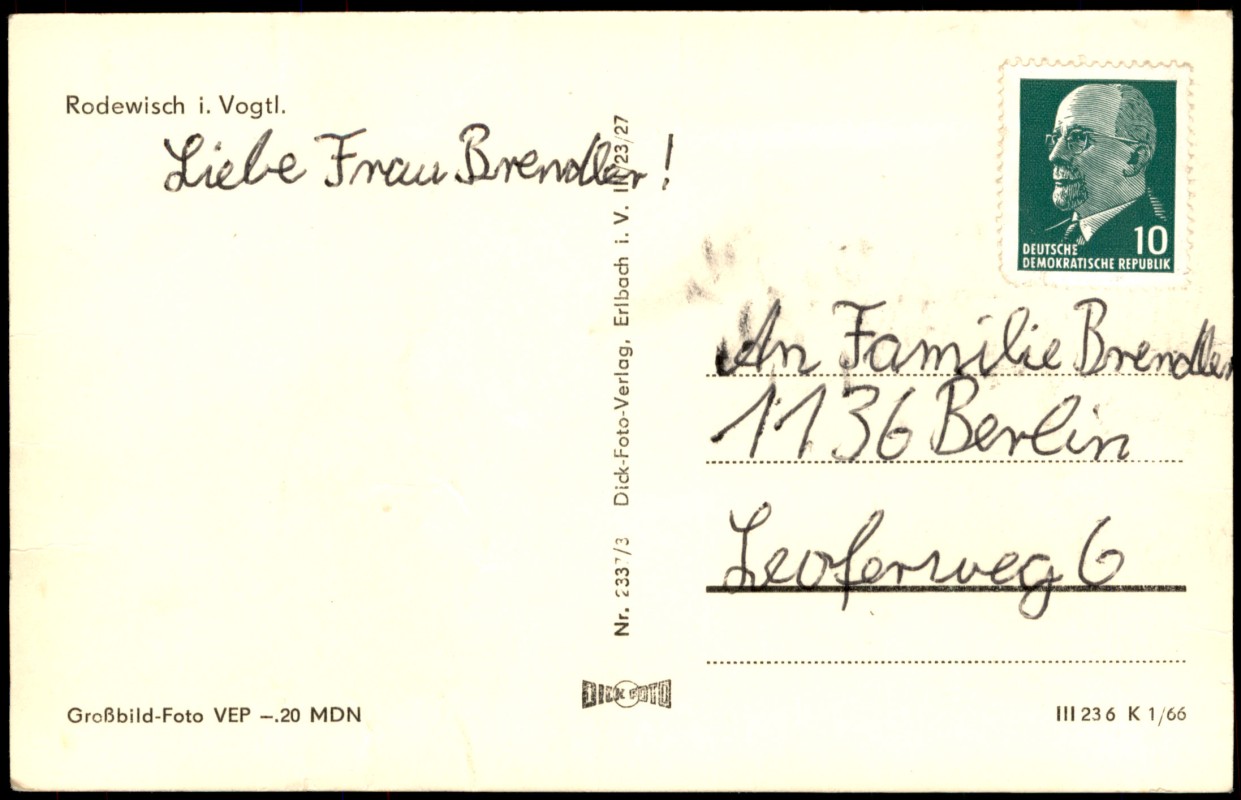 Rodewisch i. Vogtl.
Liebe Frau Brendler!
10
DEUTSCHE
DEMOKRATISCHE REPUBLIK
An Familie Brendler
1136 Berlin
Leoferweg 6
Nr. 2337/3 Dick-Foto-Verlag, Erlbach i. V. III/23/27
DICK FOTO
Großbild-Foto VEP –.20 MDN
III 23 6 K 1/66